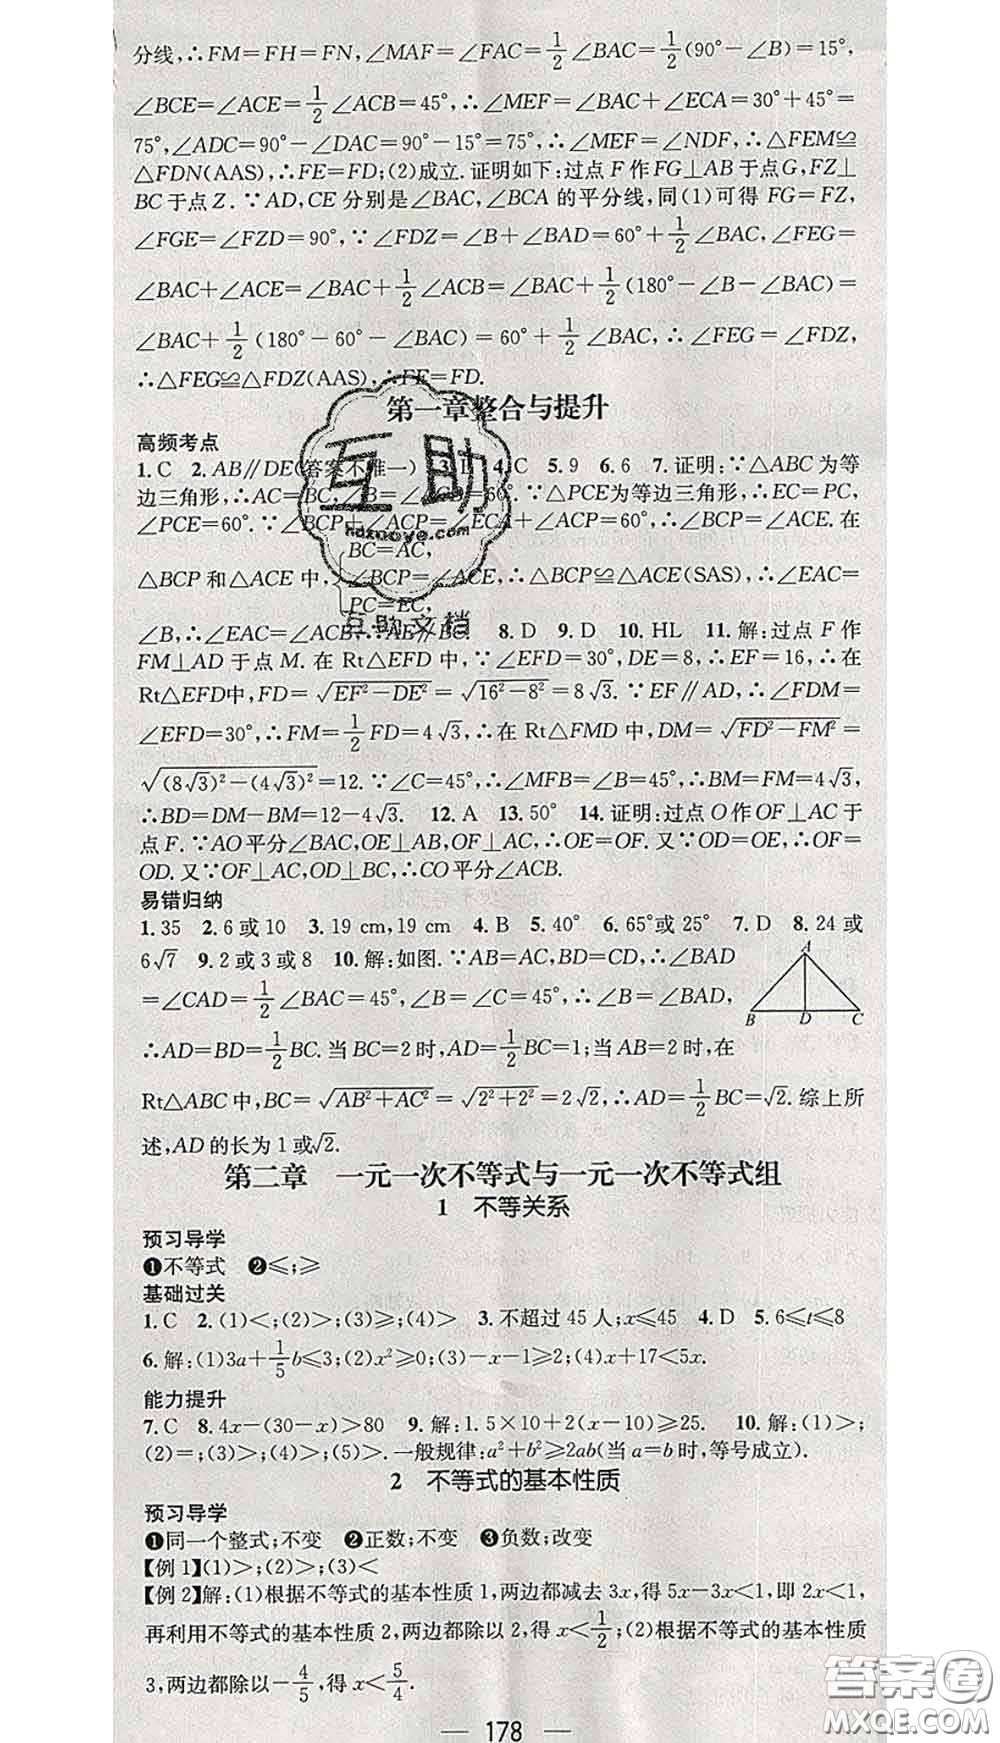 分线,∴FM=FH=FN,∠MAF=∠FAC=1/2∠BAC=1/2(90°-∠B)=15°,
∠BCE=∠ACE=1/2∠ACB=45°,∴∠MEF=∠BAC+∠ECA=30°+45°=
75°,∠ADC=90°-∠DAC=90°-15°=75°,∴∠MEF=∠NDF,∴△FEM≌
△FDN(AAS),∴FE=FD;(2)成立.证明如下:过点F作FG⊥AB于点G,FZ⊥
BC于点Z.∵AD,CE分别是∠BAC,∠BCA的平分线,同(1)可得FG=FZ,
∠FGE=∠FZD=90°,∵∠FDZ=∠B+∠BAD=60°+1/2∠BAC,∠FEG=
∠BAC+∠ACE=∠BAC+1/2∠ACB=∠BAC+1/2(180°-∠B-∠BAC)=
∠BAC+1/2(180°-60°-∠BAC)=60°+1/2∠BAC,∴∠FEG=∠FDZ,
∴△FEG≌△FDZ(AAS),∴FE=FD.
第一章整合与提升
高频考点
1.C 2.AB∥DE(答案不唯一) 3. 4.C 5.9 6.6 7.证明:∵△ABC为等
边三角形,∴AC=BC,∠B=∠ACB=60°.∵△PCE为等边三角形,∴EC=PC,
∠PCE=60°.∵∠BCP+∠ACP=∠ECA+∠ACP=60°,∴∠BCP=∠ACE.在
△BCP和△ACE中,{BC=AC,
∠BCP=∠ACE,∴△BCP≌△ACE(SAS),∴∠EAC=
PC=EC,
∠B,∴∠EAC=∠ACB,∴AE∥BC. 8.D 9.D 10.HL 11.解:过点F作
FM⊥AD于点M.在Rt△EFD中,∵∠EFD=30°,DE=8,∴EF=16,∴在
Rt△EFD中,FD=√(EF²-DE²)=√(16²-8²)=8√3.∵EF∥AD,∴∠FDM=
∠EFD=30°,∴FM=1/2FD=4√3,∴在Rt△FMD中,DM=√(FD²-FM²)=
√((8√3)²-(4√3)²)=12.∵∠C=45°,∴∠MFB=∠B=45°,∴BM=FM=4√3,
∴BD=DM-BM=12-4√3. 12.A 13.50° 14.证明:过点O作OF⊥AC于
点F.∵AO平分∠BAC,OE⊥AB,OF⊥AC,∴OE=OF.又∵OD=OE,∴OF=
OD.又∵OF⊥AC,OD⊥BC,∴CO平分∠ACB.
易错归纳
1.35 2.6或10 3.19 cm,19 cm 4.B 5.40° 6.65°或25° 7.D 8.24或
6√7 9.2或3或8 10.解:如图.∵AB=AC,BD=CD,∴∠BAD
=∠CAD=1/2∠BAC=45°,∠B=∠C=45°,∴∠B=∠BAD,
A
B D C
∴AD=BD=1/2BC.当BC=2时,AD=1/2BC=1;当AB=2时,在
Rt△ABC中,BC=√(AB²+AC²)=√(2²+2²)=2√2,∴AD=1/2BC=√2.综上所
述,AD的长为1或√2.
第二章 一元一次不等式与一元一次不等式组
1 不等关系
预习导学
❶不等式 ❷≤;≥
基础过关
1.C 2.(1)<;(2)>;(3)≥;(4)> 3.不超过45人;x≤45 4.D 5.6≤t≤8
6.解:(1)3a+1/5b≤3;(2)x²≥0;(3)-x-1≥2;(4)x+17<5x.
能力提升
7.C 8.4x-(30-x)>80 9.解:1.5×10+2(x-10)≥25. 10.解:(1)>;
(2)=;(3)>;(4)>;(5)>.一般规律:a²+b²≥2ab(当a=b时,等号成立).
2 不等式的基本性质
预习导学
❶同一个整式;不变 ❷正数;不变 ❸负数;改变
【例1】(1)>;(2)>;(3)<
【例2】解:(1)根据不等式的基本性质1,两边都减去3x,得5x-3x<1,即2x<1,
再利用不等式的基本性质2,两边都除以2,得x<1/2;(2)根据不等式的基本性质
3,两边都除以-4/5,得x<5/4.
— 178 —
互助
hozuoye.com
互助文档
答案圈
MXQE.COM